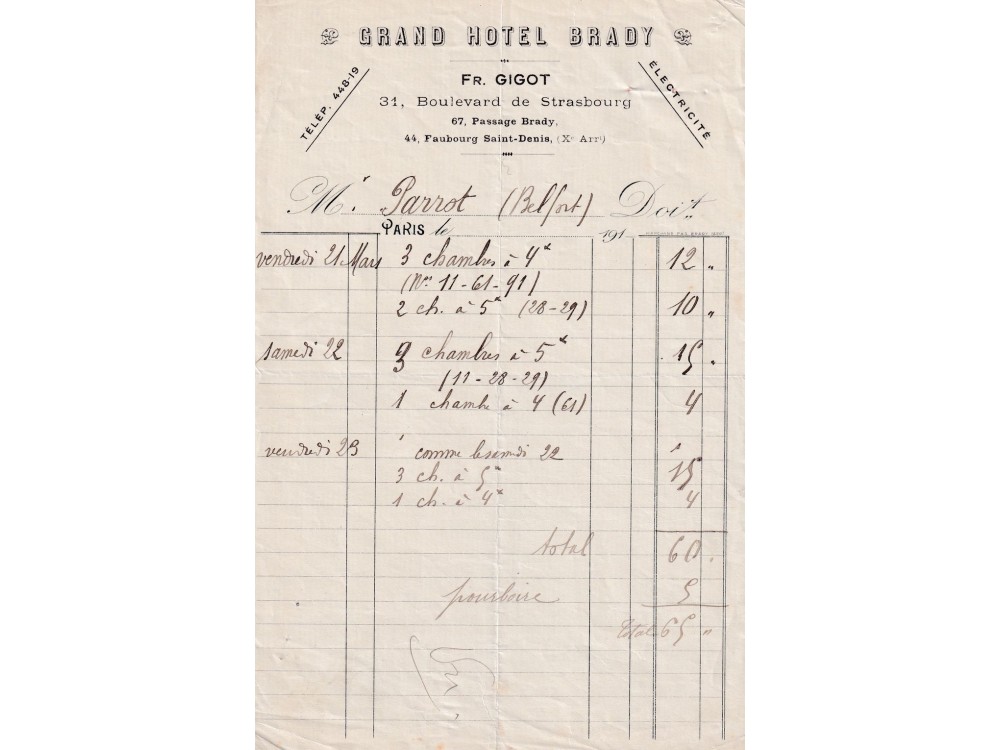 GRAND HOTEL BRADY
TÉLÉP. 448-19
ÉLECTRICITÉ
FR. GIGOT
31, Boulevard de Strasbourg
67, Passage Brady,
44, Faubourg Saint-Denis, (Xe Arrt)
Mr. Parrot (Belfort) Doit
PARIS le 191
vendredi 21 Mars 3 chambres à 4 x 12 "
(Nos 11-61-91)
2 ch. à 5 x (28-29) 10 "
samedi 22 3 chambres à 5 x 15 "
(11-28-29)
1 chambe à 4 (61) 4
vendredi 23 comme le samedi 22
3 ch. à 5 x 15
1 ch. à 4 x 4
total 60 "
pourboire 5
Total 65 "